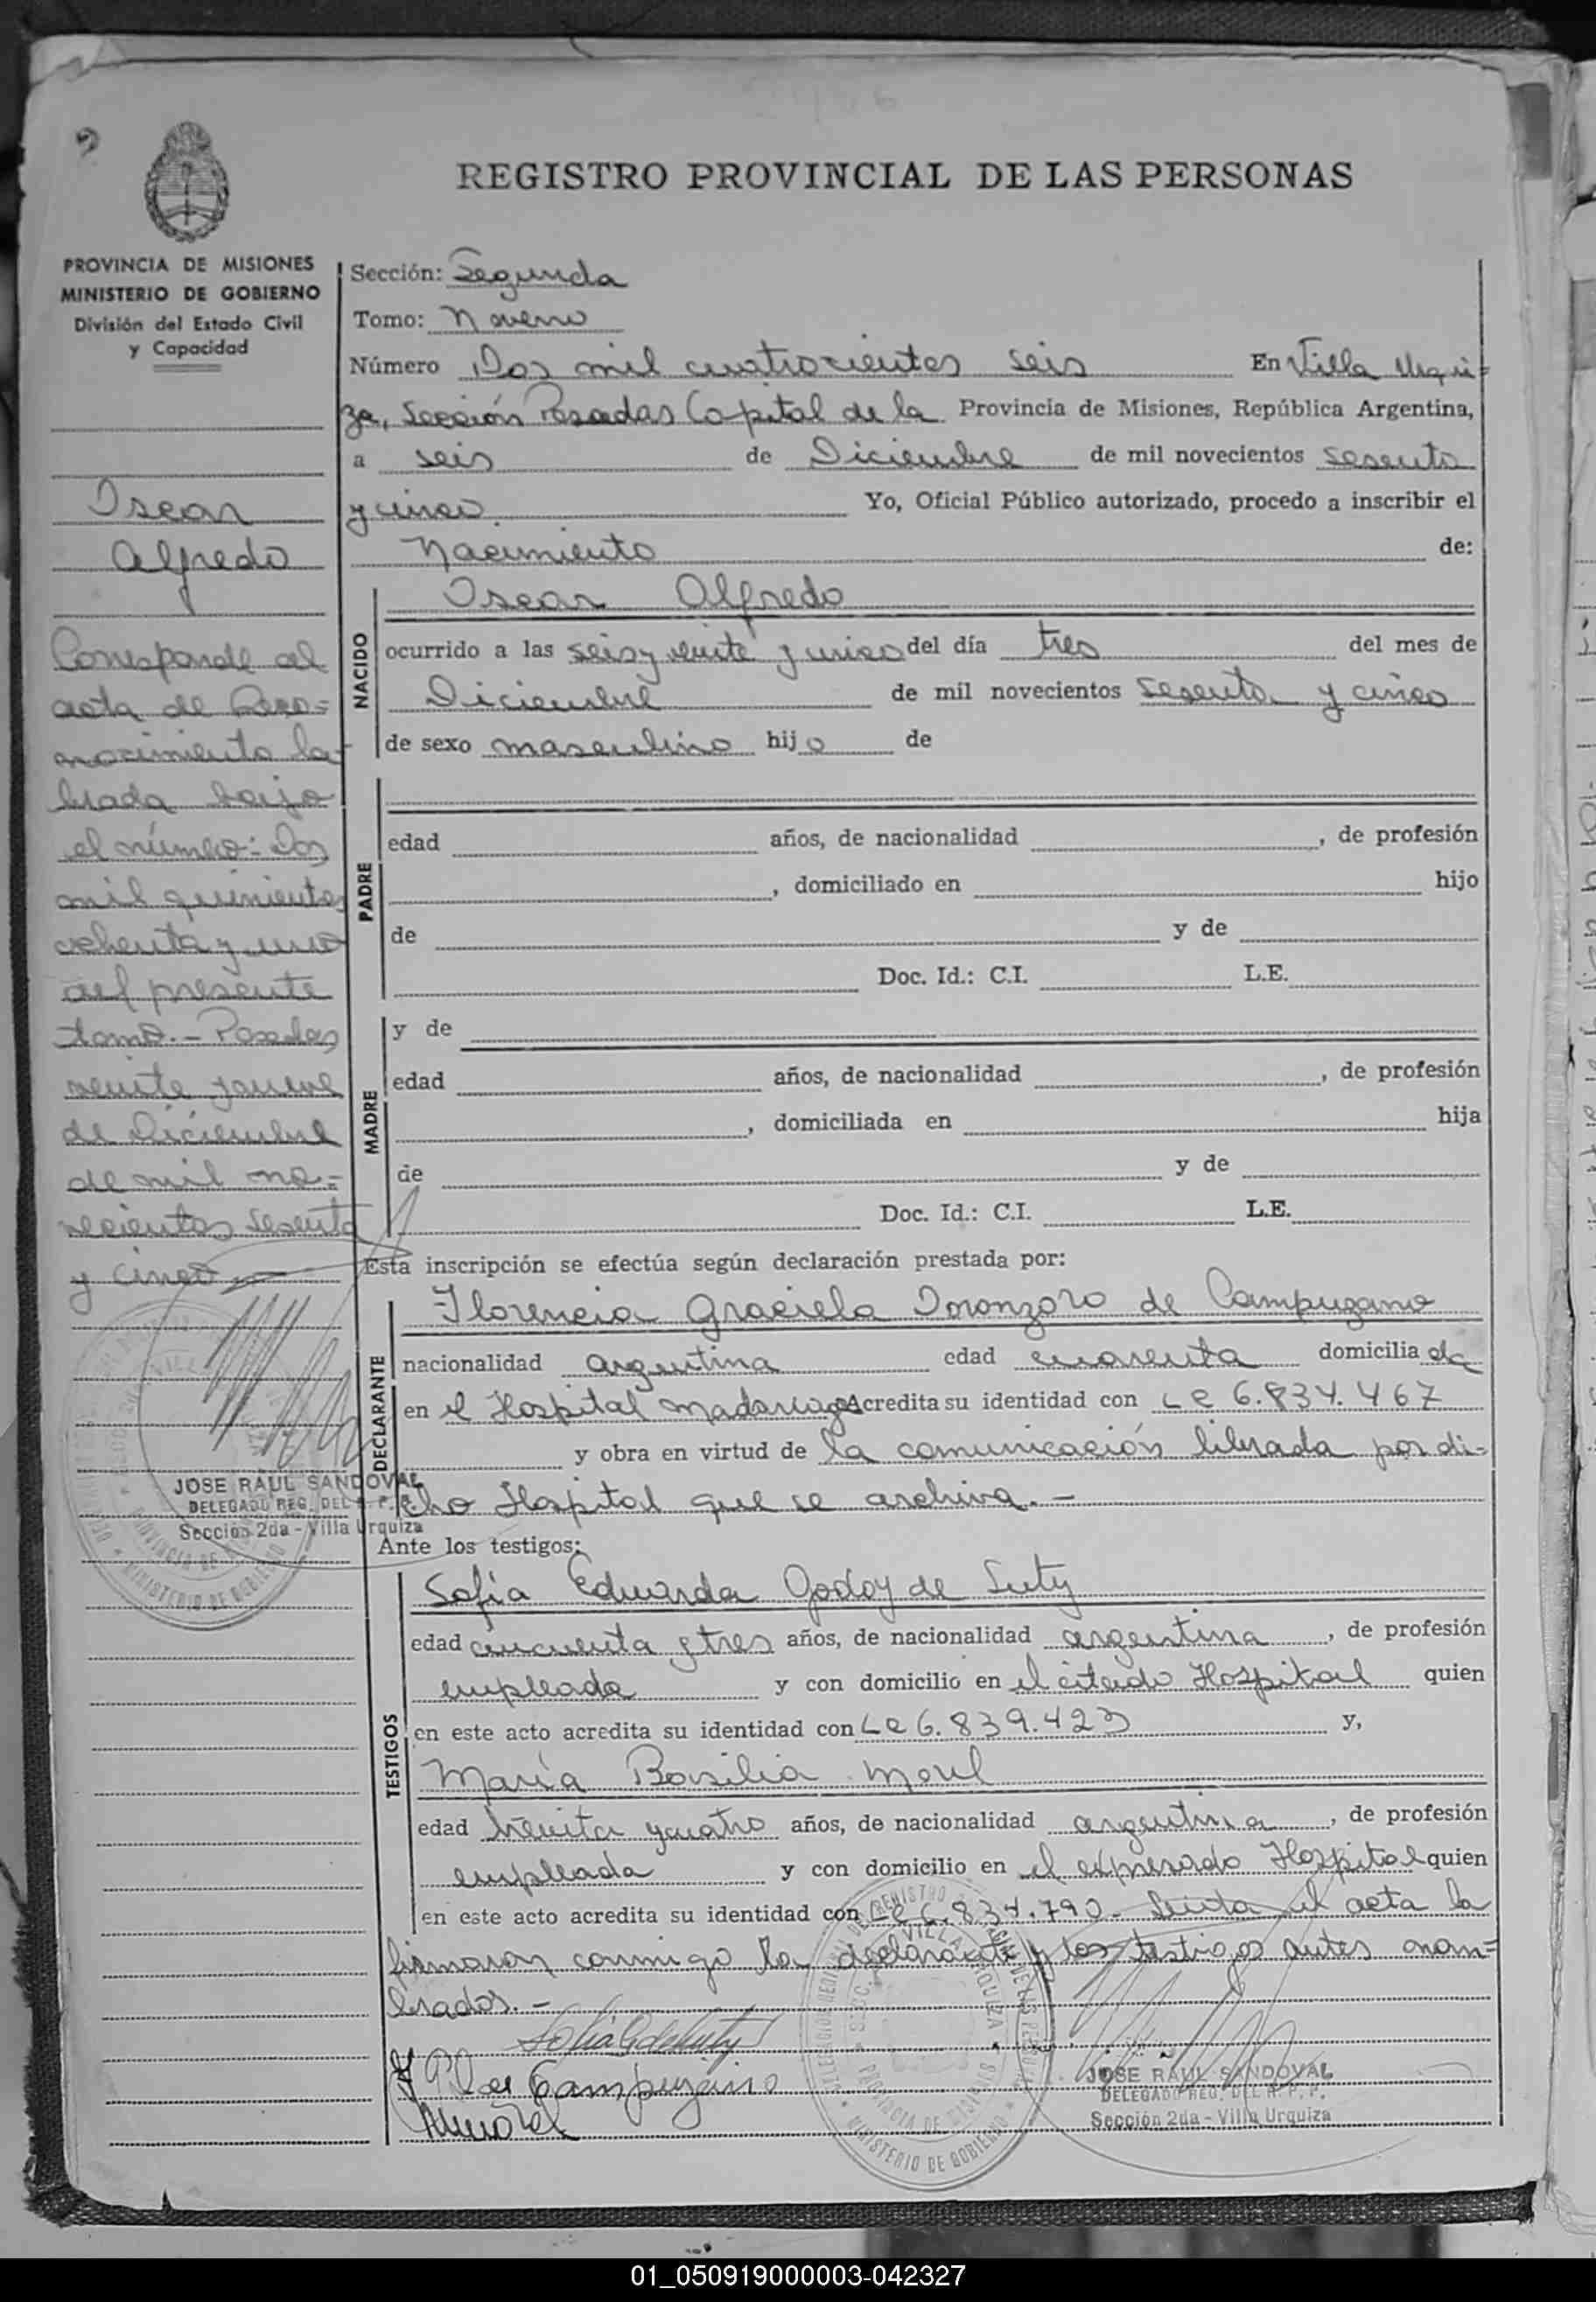 REGISTRO PROVINCIAL DE LAS PERSONAS
PROVINCIA DE MISIONES
MINISTERIO DE GOBIERNO
División del Estado Civil
y Capacidad
Oscar
Alfredo
Corresponde al
acta de Reco=
nocimiento la-
brada bajo
el número: Dos
mil quinientos
ochenta y uno
del presente
tomo.- Posadas
veinte y nueve
de Diciembre
de mil no=
vecientos sesenta
y cinco
JOSE RAUL SANDOVAL
DELEGADO REG. DEL R. P. P.
Sección 2da - Villa Urquiza
Sección: Segunda
Tomo: Noveno
Número Dos mil cuatrocientos seis En Villa Urqui=
za, Sección Posadas Capital de la Provincia de Misiones, República Argentina,
a seis de Diciembre de mil novecientos sesenta
y cinco. Yo, Oficial Público autorizado, procedo a inscribir el
Nacimiento de:
NACIDO
Oscar Alfredo
ocurrido a las seis y veinte y cinco del día tres del mes de
Diciembre de mil novecientos sesenta y cinco
de sexo masculino hijo de
PADRE
edad años, de nacionalidad , de profesión
, domiciliado en hijo
de y de
Doc. Id.: C.I. L.E.
MADRE
y de
edad años, de nacionalidad , de profesión
, domiciliada en hija
de y de
Doc. Id.: C.I. L.E.
Esta inscripción se efectúa según declaración prestada por:
DECLARANTE
Florencia Graciela Oronzoro de Campuzano
nacionalidad argentina edad cuarenta domicilia da
en el Hospital Madariaga Acredita su identidad con Le 6.834.467
y obra en virtud de la comunicación librada por di-
cho Hospital que se archiva.-
Ante los testigos:
TESTIGOS
Sofía Eduarda Godoy de Suty
edad cincuenta y tres años, de nacionalidad argentina, de profesión
empleada y con domicilio en el citado Hospital quien
en este acto acredita su identidad con Le 6.839.423 y,
María Basilia Morel
edad treinta y cuatro años, de nacionalidad argentina, de profesión
empleada y con domicilio en el expresado Hospital quien
en este acto acredita su identidad con Le 6.834.790- Leída el acta la
firmaron conmigo la declarante y los testigos antes nom=
brados.-
Sofia G de Suty
de Campuzano
JOSE RAUL SANDOVAL
DELEGADO REG. DEL R. P. P.
Sección 2da - Villa Urquiza
01_050919000003-042327